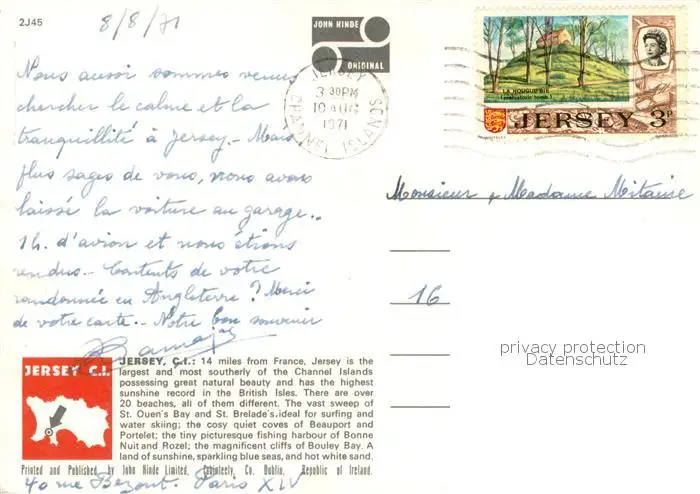 2J45
8/8/71
JOHN HINDE
ORIGINAL
JERSEY
3 30PM
10 AUG
1971
CHANNEL ISLANDS
LA HOUGUE BIE
(prehistoric tomb)
JERSEY 3P
Nous aussi sommes venus
chercher le calme et la
tranquillité à Jersey.. Mais
plus sages de vous, nous avons
laissé la voiture au garage..
1h. d'avion et nous étions
rendus.. Contents de votre
randonnée en Angleterre? Merci
de votre carte.. Notre bon souvenir
Monsieur & Madame Mitaine
16
privacy protection
Datenschutz
JERSEY C.I.
JERSEY, C.I.: 14 miles from France, Jersey is the
largest and most southerly of the Channel Islands
possessing great natural beauty and has the highest
sunshine record in the British Isles. There are over
20 beaches, all of them different. The vast sweep of
St. Ouen's Bay and St. Brelade's,ideal for surfing and
water skiing; the cosy quiet coves of Beauport and
Portelet; the tiny picturesque fishing harbour of Bonne
Nuit and Rozel; the magnificent cliffs of Bouley Bay. A
land of sunshine, sparkling blue seas, and hot white sand.
Printed and Published by John Hinde Limited, Cabinteely, Co. Dublin, Republic of Ireland.
40 rue Bezout. Paris XIV